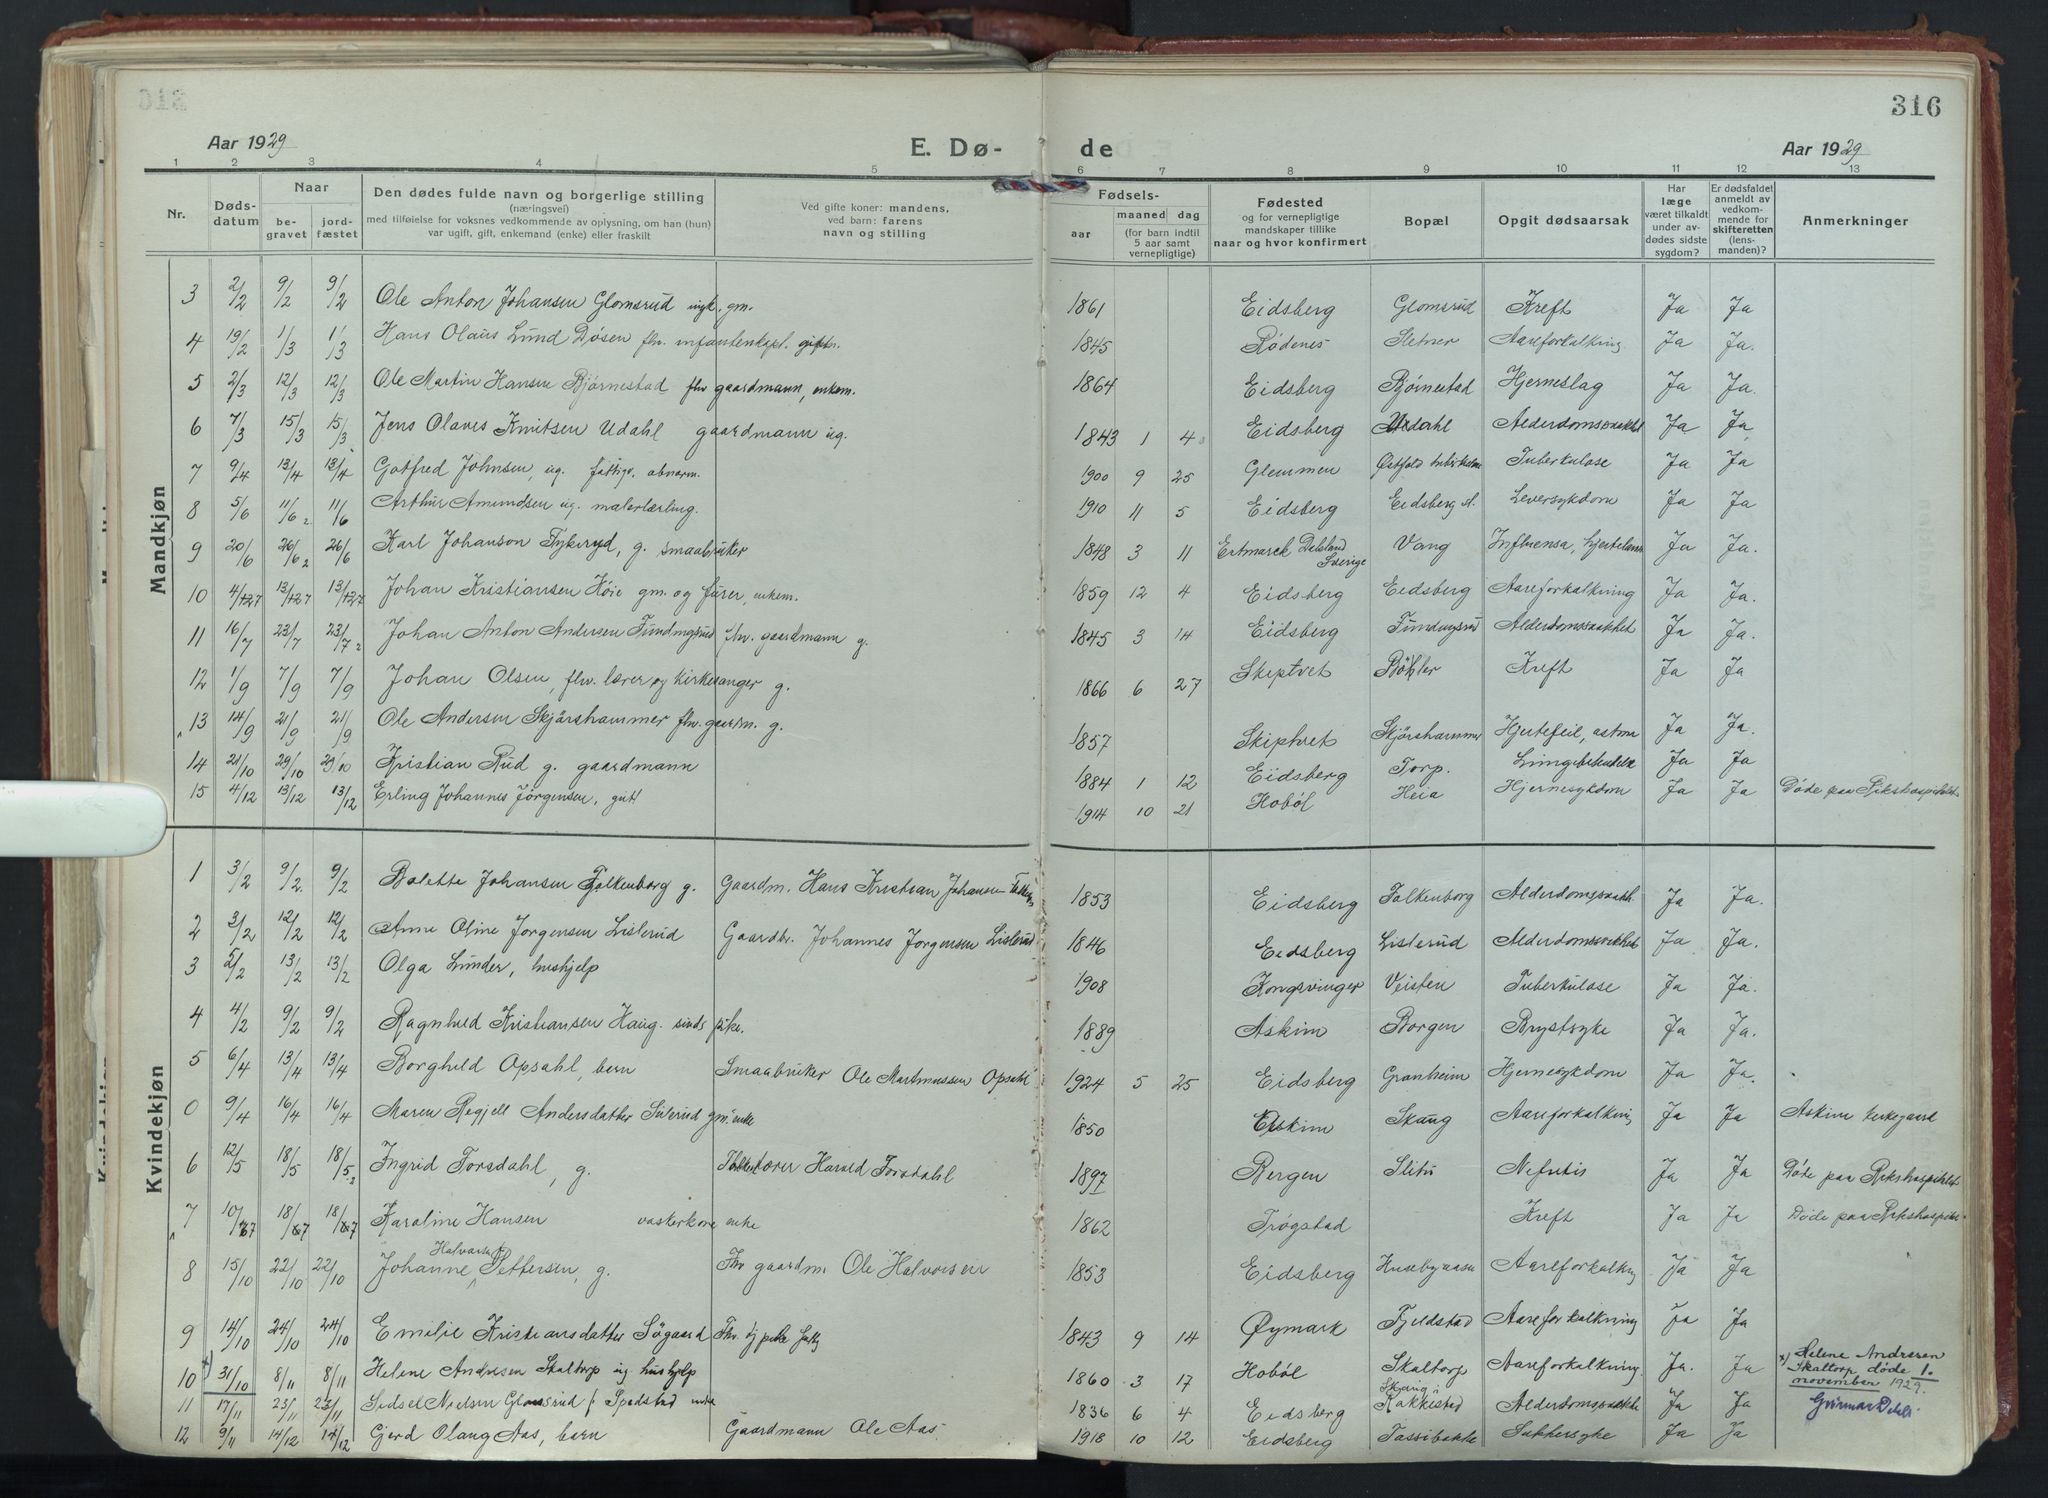 316
Aar 1929
E. Dø-
de
Aar 1929
1 2 3 4 5 6 7 8 9 10 11 12 13
Nr.
Døds-
datum
Naar
be-
gravet
jord-
fæstet
Den dødes fulde navn og borgerlige stilling
(næringsvei)
med tilføielse for voksnes vedkommende av oplysning, om han (hun)
var ugift, gift, enkemand (enke) eller fraskilt
Ved gifte koner: mandens,
ved barn: farens
navn og stilling
Fødsels-
aar
maaned
dag
(for barn indtil
5 aar samt
vernepligtige)
Fødested
og for vernepligtige
mandskaper tillike
naar og hvor konfirmert
Bopæl
Opgit dødsaarsak
Har
læge
været tilkaldt
under av-
dødes sidste
sygdom?
Er dødsfaldet
anmeldt av
vedkom-
mende for
skifteretten
(lens-
manden)?
Anmerkninger
Mandkjøn
3 2/2 9/2 9/2 Ole Anton Johansen Glomsrud ugk. gm. 1861 Eidsberg Glomsrud Kreft Ja Ja
4 19/2 1/3 1/3 Hans Olaus Lund Døsen fhv. giftn. 1845 Rødenes Sletner Aareforkalkning Ja Ja.
5 2/3 12/3 12/3 Ole Martin Hansen Bjørnestad fhv gaardmann, enkem. 1864 Eidsberg Bjørnestad Hjerneslag Ja Ja.
6 7/3 15/3 15/3 Jens Olaves Knutsen Udahl gaardmann ug. 1843 1 4 Eidsberg Udahl Alderdomssvakhet Ja Ja
7 9/4 13/4 13/4 Gotfred Johnsen, ug. fattigv. abnorm. 1900 9 25 Glemmen Østfold Tuberkulose Ja Ja
8 5/6 11/6 2 11/6 Arthur Amundsen ug. malerlærling. 1910 11 5 Eidsberg Eidsberg st. Leversykdom Ja Ja
9 20/6 26/6 2 26/6 Karl Johanson Fykerud, g. smaabruker 1848 3 11 Ertmarck Dalsland Sverige Vang Influensa, Ja Ja.
10 4/7 13/7 13/7 Johan Kristiansen Høie gm. og fører, enkem. 1859 12 4 Eidsberg Eidsberg Aareforkalkning Ja Ja.
11 16/7 23/7 23/7 2 Johan Anton Andersen Fundingsrud fhv. gaardmann g. 1845 3 14 Eidsberg Fundingsrud Alderdomssvakhet Ja Ja.
12 1/9 7/9 7/9 Johan Olsen, fhv. lærer og kirkesanger g. 1866 6 27 Skiptvet Bøhler Kreft Ja Ja
13 14/9 21/9 21/9 Ole Andersen Skjørshammer fhv. gaardm. g. 1857 Skiptvet Skjørshammer Hjertefeil, astma Ja Ja.
14 21/10 29/10 29/10 Kristian Rud g. gaardmann 1884 1 12 Eidsberg Torp. Ja Ja
15 4/12 13/12 13/12 Erling Johannes Jørgensen, gutt 1914 10 21 Hobøl Heia Hjernesykdom Ja Ja Døde paa Rikshospitalet
Kvindekjøn
1 3/2 9/2. 9/2 Bolette Johansen Folkenborg g. Gaardm. Hans Kristian Johansen 1853 Eidsberg Folkenborg Alderdomssvakh. Ja Ja.
2 3/2 12/2 12/2 Anne Oline Jørgensen Lislerud Gaardbr. Johannes Jorgensen Lislerud 1846 Eidsberg Lislerud Alderdomssvakhet Ja Ja.
3 5/2 13/2 13/2 Olga Lunder, hushjelp 1908 Kongsvinger Veisten Tuberkulose Ja Ja.
4 4/2 9/2 9/2 Ragnhild Kristiansen Haug. sinds pike. 1889 Askim Borgen Brystsyke Ja Ja.
5 6/4 13/4 13/4 Borghild Opsahl, barn Smaabruker Ole Martinussen Opsahl 1924 5 25 Eidsberg Granheim Hjernesykdom Ja Ja.
0 9/4 16/4 16/4 Maren Regjell Andersdatter Sulerud gm. enke 1850 Askim Skaug Aareforkalkning Ja Ja Askim kirkegaard
6 12/5 18/5 18/5 2 Ingrid Torsdahl, g. Harald Torsdahl 1897 Bergen Slitu Nefritis Ja Ja Døde paa Rikshospitalet
7 10/7 18/7 18/7 Karoline Hansen vaskerkone enke 1862 Trøgstad Kreft Ja Ja Døde paa Rikshospital
8 15/10 22/10 22/10 Johanne Halvorsen Pettersen, g. Fhv gaardm. Ole Halvorsen 1853 Eidsberg Husebyaasen Aareforkalkning Ja Ja
9 14/10 24/10 24/10 Emilie Kristiansdatter Søgaard Fhv. tj pike 1843 9 14 Øymark Fjeldstad Aareforkalkning Ja Ja
10 x) 31/10 8/11 8/11 Helene Andresen Skaltorp ug. hushjelp 1860 3 17 Hobøl Skaltorp Aareforkalkning. Ja. Ja x) Helene Andresen
Skaltorp døde 1.
november 1929.
Gunnar Dehli.
11 17/11 23/11 23/11 Sidsel Nielsen Glomsrud f. Spedstad enke 1836 6 4 Eidsberg Skaug i Rakkestad Alderdomssvakhet Ja Ja
12 9/11 14/12 14/12 Gjerd Olaug Aas, barn Gaardmann Ole Aas 1918 10 12 Eidsberg Tassibakke Sukkersyke Ja Ja